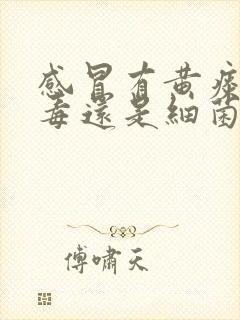 感冒有黄痰
毒還是細菌
傅嘯天